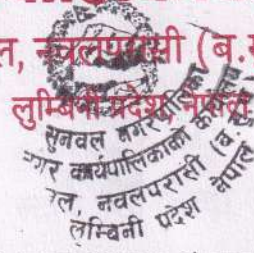 ल, नवलपरासी (ब.सु
लुम्बिनी प्रदेश, नेपाल
सुनवल नगरपालिका
नगर कार्यपालिकाको कार्यालय
वल, नवलपरासी (ब.सु
लुम्बिनी प्रदेश नेपाल